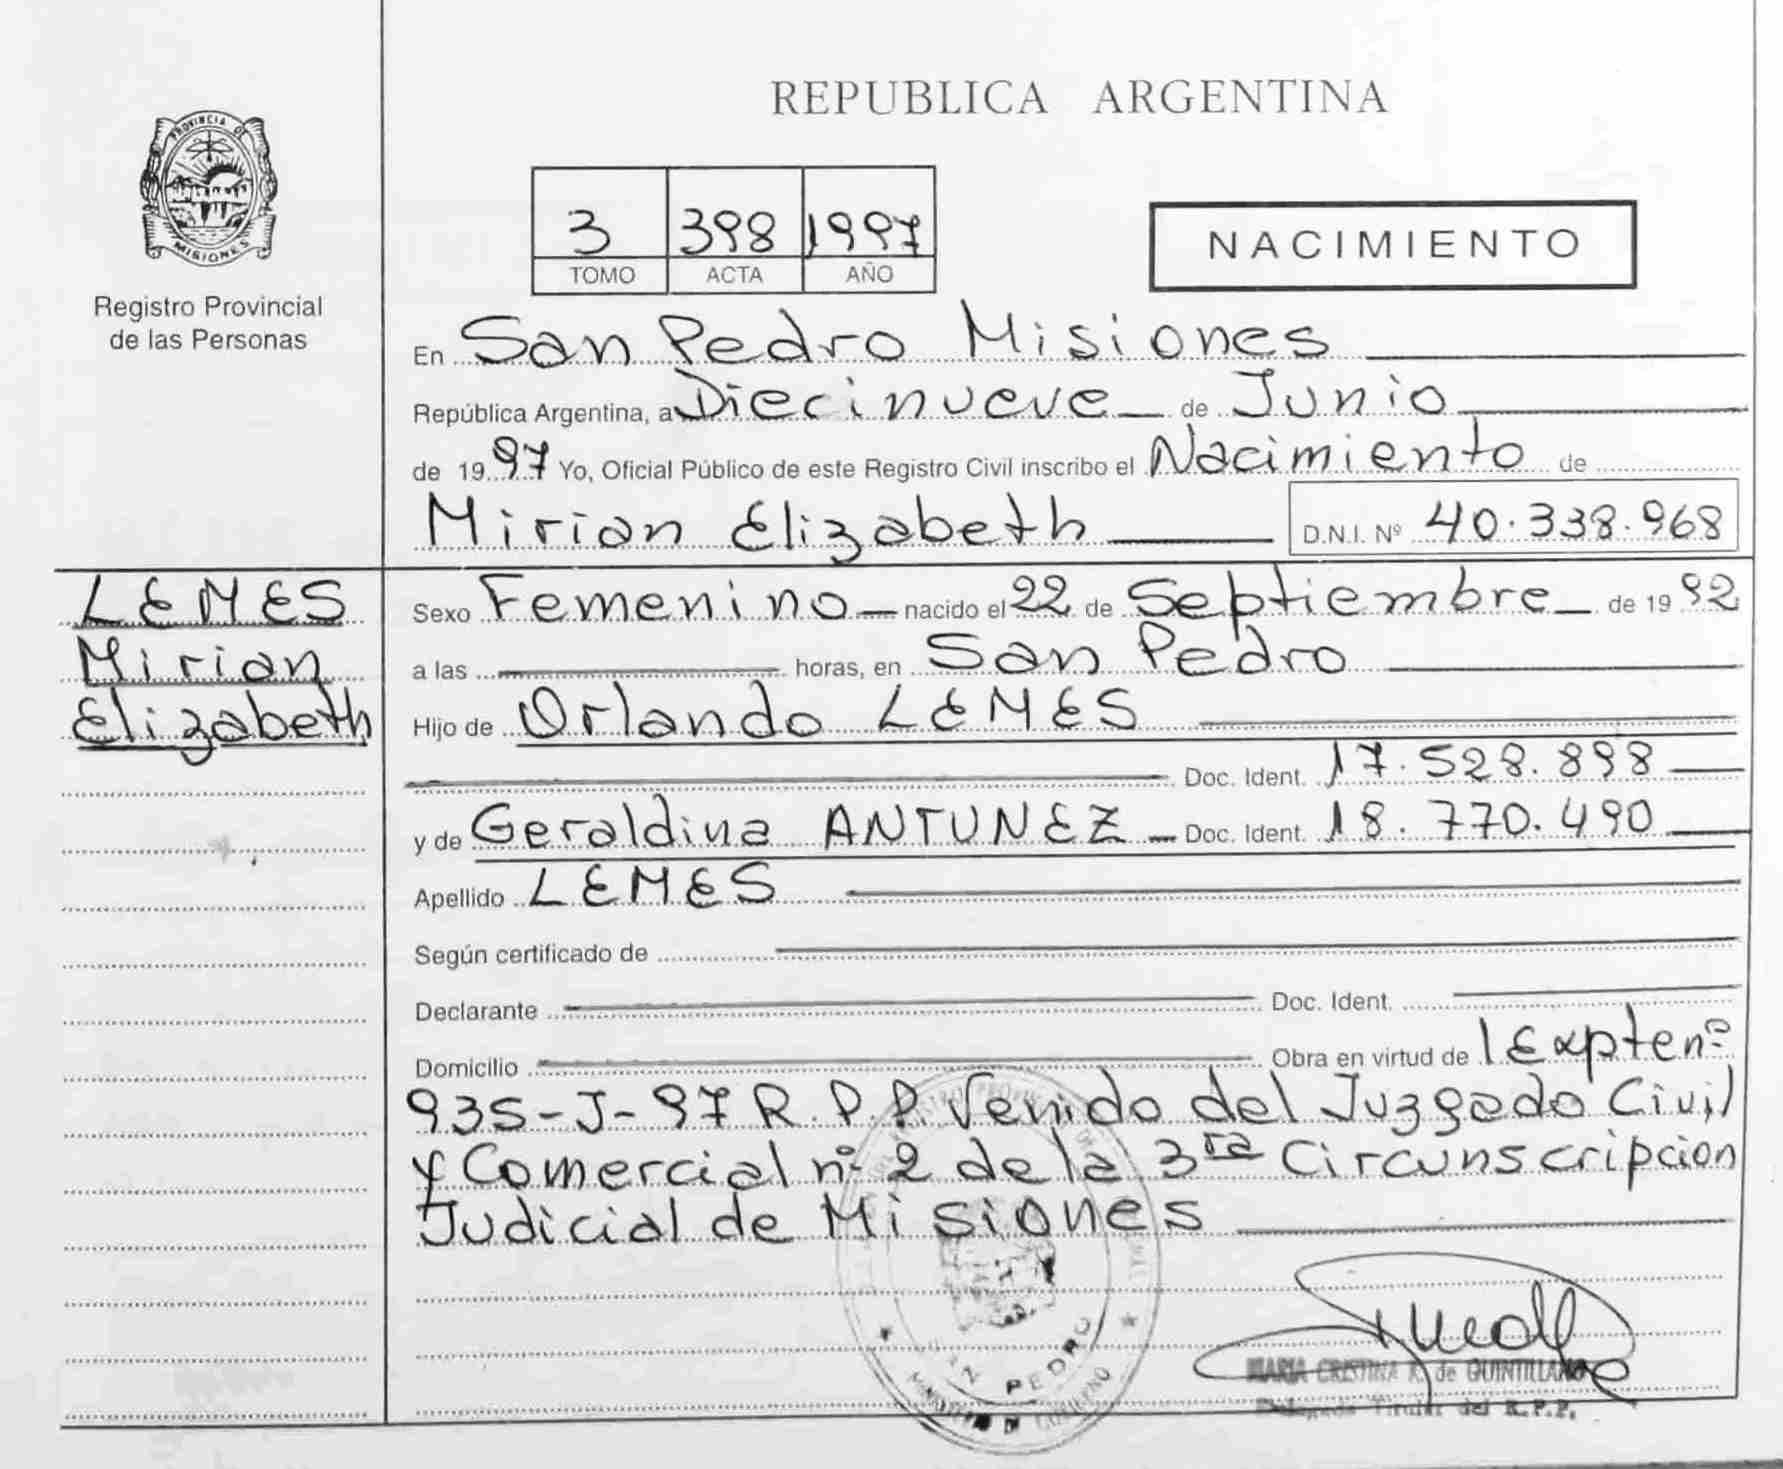 REPUBLICA ARGENTINA
PROVINCIA DE
MISIONES
Registro Provincial
de las Personas
3 398 1997
TOMO ACTA AÑO
NACIMIENTO
En San Pedro Misiones
República Argentina, a Diecinueve de Junio
de 1997 Yo, Oficial Público de este Registro Civil inscribo el Nacimiento de
Mirian Elizabeth D.N.I. Nº 40.338.968
LEMES
Mirian
Elizabeth
Sexo Femenino nacido el 22 de Septiembre de 1992
a las horas, en San Pedro
Hijo de Orlando LEMES
Doc. Ident. 17.528.898
y de Geraldina ANTUNEZ Doc. Ident. 18.770.490
Apellido LEMES
Según certificado de
Declarante Doc. Ident.
Domicilio Obra en virtud de Expte nº
935-J-97 R.P.P. Venido del Juzgado Civil
y Comercial nº 2 de la 3ra Circunscripcion
Judicial de Misiones
PEDRO
MARIA CRISTINA R. de QUINTILLANO
Delegada Titular del R.P.P.